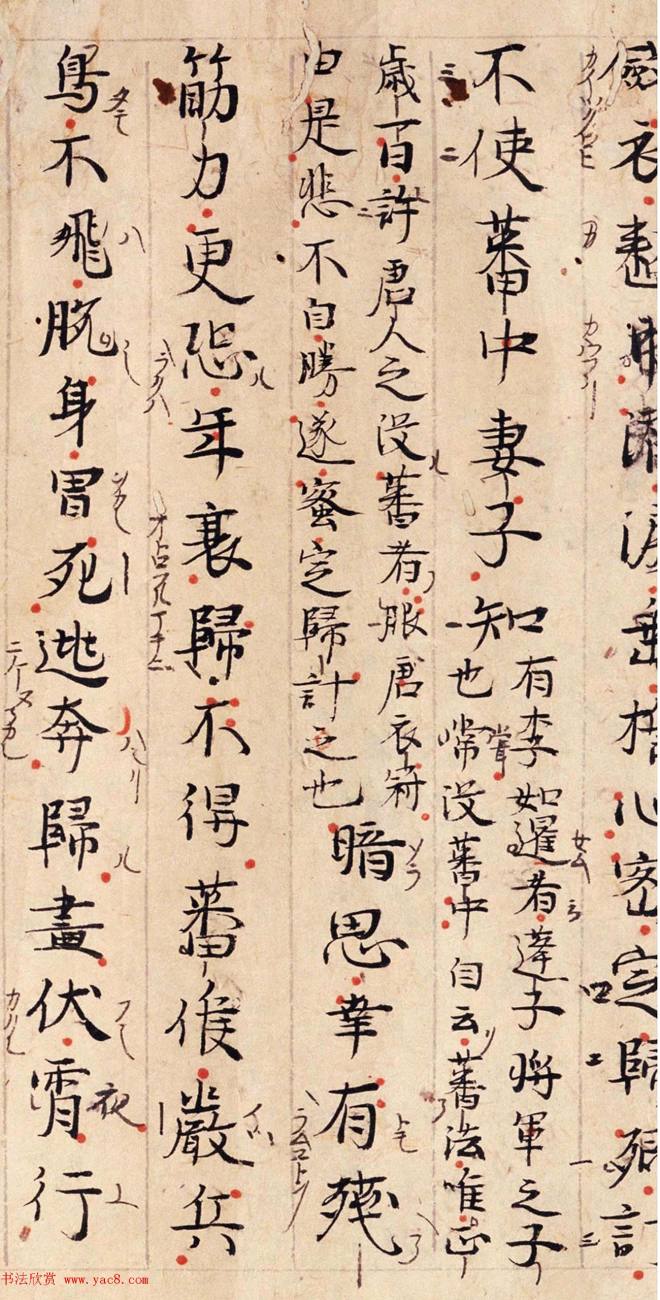 衣整巾潛淚垂心密定歸鄉計
不使蕃中妻子知
有李如暹者蓬子將軍之子
也嘗沒蕃中自云蕃法唯正
歲一日許唐人之沒蕃者服唐衣符
由是悲不自勝遂蜜定歸計之也
暗思幸有殘
筋力更恐年衰歸不得蕃候嚴兵
鳥不飛脫身冒死逃奔歸晝伏宵行
书法欣赏 www.yac8.com